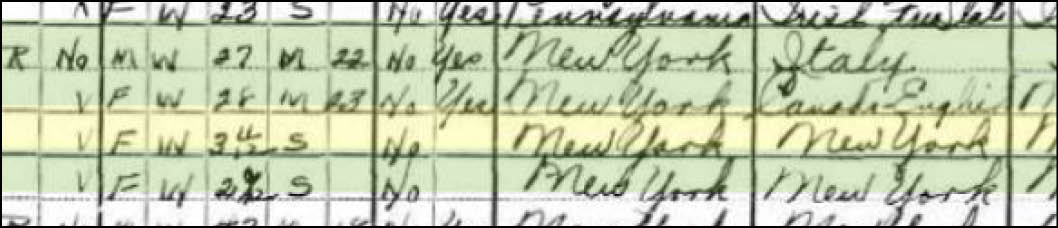 F W 23 S No Yes Pennsylvania
R No M W 27 M 22 No Yes New York Italy
V F W 28 M 23 No Yes New York Canada-English
V F W 3 4/12 S No New York New York
V F W S No New York New York